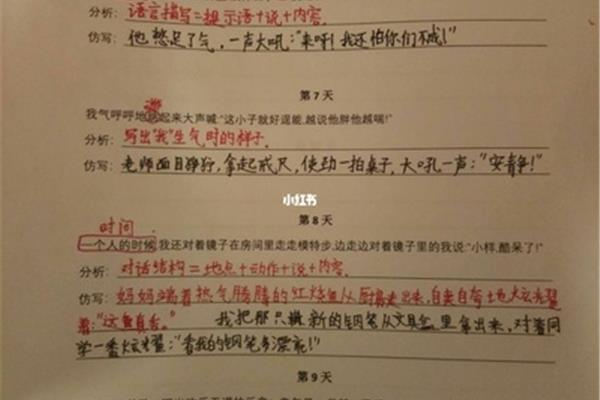 分析: 语言描写=提示语+说+内容.
仿写: 他憋足了气,一声大吼:"来呀!我还怕你们不成!"
第 7 天
我气呼呼地 起来大声喊:"这小子就好逞能,越说他胖他越喘!"
分析: 写出"我"生气时的样子.
仿写: 老师面目狰狞,拿起戒尺,使劲一拍桌子,大吼一声:"安静!"
小红书
第 8 天
时间
一个人的时候,我还对着镜子在房间里走走模特步,边走边对着镜子里的我说:"小样,酷呆了!"
分析: 对话结构=地点+动作+说+内容.
仿写: 妈妈端着热气腾腾的红烧鱼从厨房走出来,自卖自夸地大声
着:"这鱼真香。" 我把那只崭新的钢笔从文具盒里拿出来,对着同
学一番炫耀:"看我的钢笔多漂亮!"
第 9 天